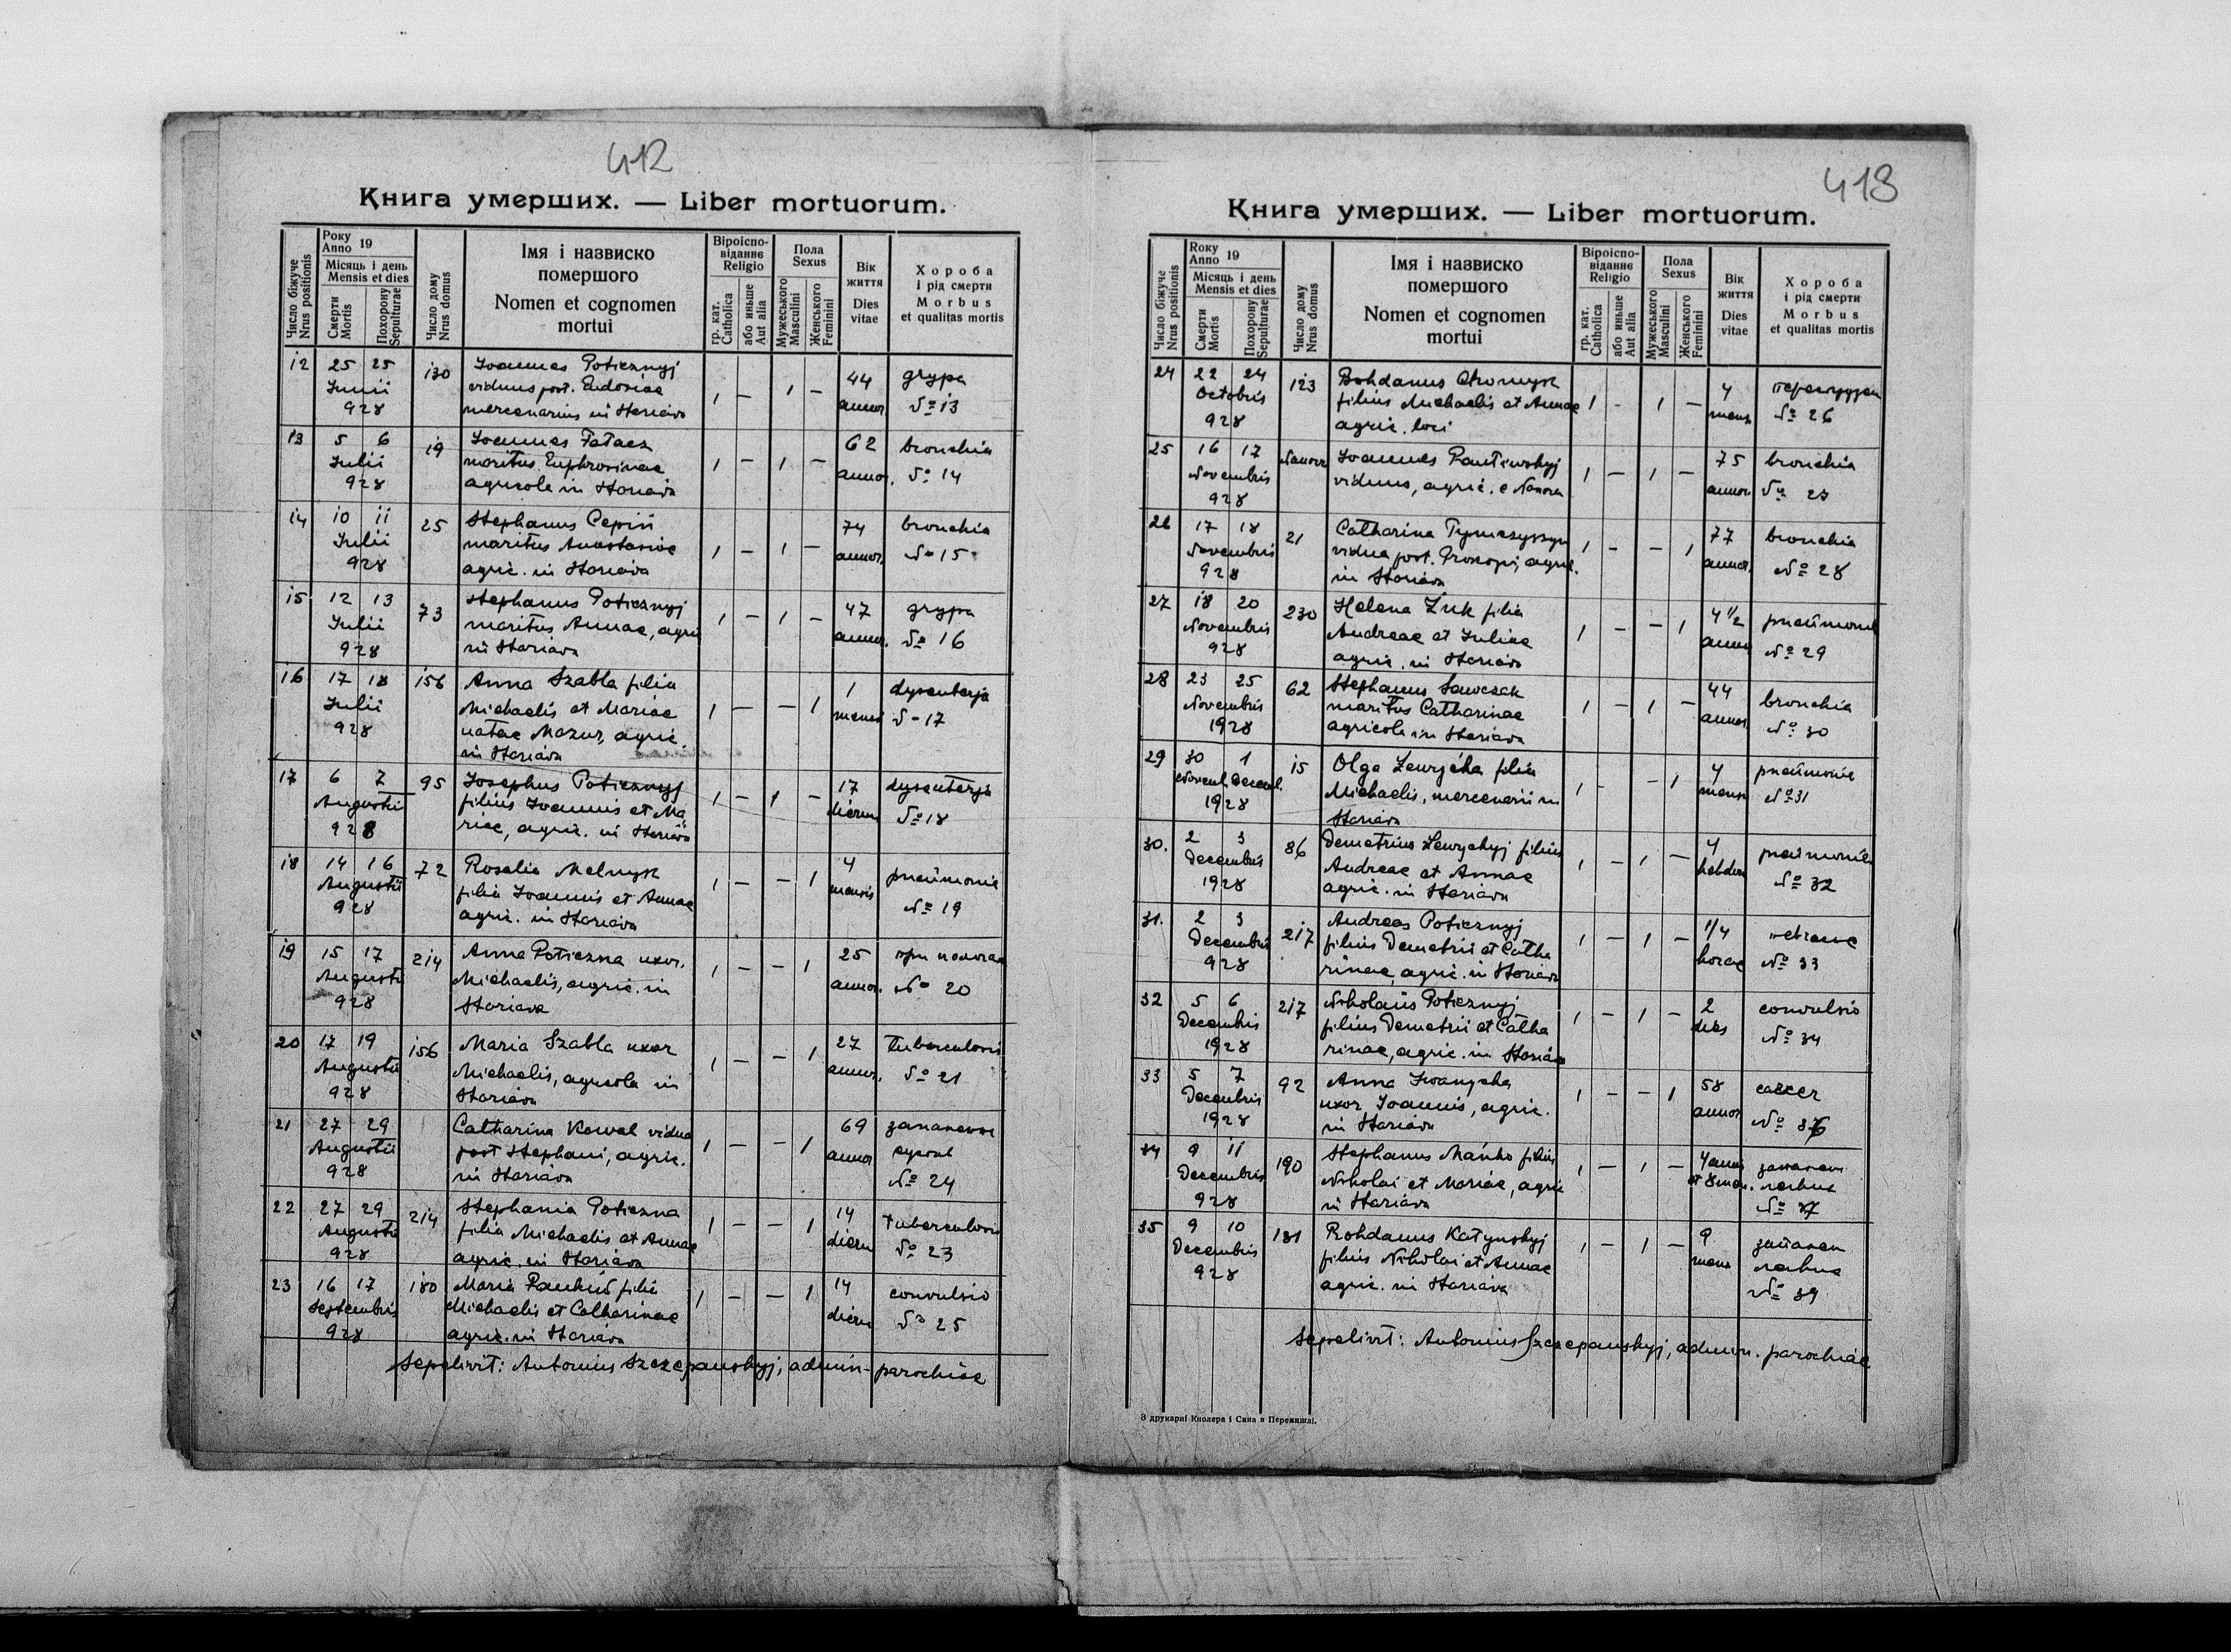 412
Книга умерших. — Liber mortuorum.
Число біжуче
Nrus positionis
Року
Anno 19
Місяць і день
Mensis et dies
Смерти
Mortis
Похорону
Sepulturae
Число дому
Nrus domus
Імя і назвиско
помершого
Nomen et cognomen
mortui
Віроіспо-
віданнє
Religio
гр. кат.
Catholica
або иньше
Aut alia
Пола
Sexus
Мужеського
Masculini
Женського
Feminini
Вік
життя
Dies
vitae
Хороба
і рід смерти
Morbus
et qualitas mortis
12 25 25 130 Joannes Poticznyj 1 — 1 — 44 grypa
Junii viduus post. Eudosiae annor. № 13
928 mercenarius in Stariava
13 5 6 19 Joannes Tatacz 1 — 1 — 62 bronchia
Julii maritus Euphrosinae annor. № 14
928 agricola in Stariava
14 10 11 25 Stephanus Cepiń 1 — 1 — 74 bronchia
Julii maritus Anastasiae annor. № 15
928 agric. in Stariava
15 12 13 73 Stephanus Poticznyj 1 — 1 — 47 grypa
Julii maritus Annae, agric annor. № 16
928 in Stariava
16 17 18 156 Anna Szabla filia 1 — — 1 1 dysenterja
Julii Michaelis et Mariae mensis № 17
928 natae Mazur, agric.
in Stariava
17 6 7 95 Josephus Poticznyj 1 — 1 — 17 dysenterja
Augusti filius Joannis et Ma dierum № 18
928 riae, agric. in Stariava
18 14 16 72 Rosalia Melnyk 1 — — 1 4 pneumonia
Augusti filia Joannis et Annae mensis № 19
928 agric. in Stariava
19 15 17 214 Anna Poticzna uxor. 1 — — 1 25 при пологах
Augusti Michaelis, agric. in annor. № 20
928 Stariava
20 17 19 156 Maria Szabla uxor 1 — — 1 27 tuberculosis
Augusti Michaelis, agricola in annor. № 21
928 Stariava
21 27 29 Catharina Kowal vidua 1 — — 1 69
Augusti post Stephani, agric. annor
928 in Stariava № 24
22 27 29 214 Stephania Poticzna 1 — — 1 14 tuberculosis
Augusti filia Michaelis et Annae dierum № 23
928 agric. in Stariava
23 16 17 180 Maria Pankiw filia 1 — — 1 14 convulsio
Septembris Michaelis et Catharinae dierum № 25
928 agric. in Stariava
Sepelivit: Antonius Szczepanskyj, admin- parochiae
413
Книга умерших. — Liber mortuorum.
Число біжуче
Nrus positionis
Року
Anno 19
Місяць і день
Mensis et dies
Смерти
Mortis
Похорону
Sepulturae
Число дому
Nrus domus
Імя і назвиско
помершого
Nomen et cognomen
mortui
Віроіспо-
віданнє
Religio
гр. кат.
Catholica
або иньше
Aut alia
Пола
Sexus
Мужеського
Masculini
Женського
Feminini
Вік
життя
Dies
vitae
Хороба
і рід смерти
Morbus
et qualitas mortis
24 22 24 123 Bohdanus Chomyk 1 - 1 — 4
Octobris filius Michaelis et Annae mens № 26
928 agric. loci
25 16 17 Nanova Joannes 1 — 1 — 75 bronchia
Novembris viduus, agric. e Nanova annor. № 27
928
26 17 18 21 Catharina 1 — — 1 77 bronchia
Novembris vidua post. Prokopi, agric. annor. № 28
928 in Stariava
27 18 20 230 Helena Żuk filia 1 — — 1 4 1/2 pneumonia
Novembris Andreae et Julinae annor № 29
928 agric. in Stariava
28 23 25 62 Stephanus Sawczak 1 — 1 — 44 bronchia
Novembris maritus Catharinae annor № 30
1928 agricola in Stariava
29 30 1 15 Olga Lewycka filia 1 - — 1 4 pneumonia
Novemb. Decemb. Michaelis, mercenarii in mens № 31
1928 Stariava
30. 2 3 86 Demetrius Lewyckyj filius 1 — 1 — 4 pneumonia
Decembris Andreae et Annae hebdom № 32
1928 agric. in Stariava
31. 2 3 217 Andreas Poticznyj 1 — 1 — 1/4
Decembris filius Demetrii et Catha horae № 33
928 rinae, agric. in Stariava
32 5 6 217 Nikolaus Poticznyj 1 — 1 — 2 convulsio
Decembris filius Demetrii et Catha dies № 34
1928 rinae, agric. in Stariava
33 5 7 92 Anna Iwanycka 1 — — 1 58 cancer
Decembris uxor Joannis, agric. annor №
1928 in Stariava
34 9 11 190 Stephanus Mańko filius 1 — 1 — 4 anni
Decembris Nikolai et Mariae, agric et 8 men.
928 in Stariava № 37
35 9 10 181 Bohdanus Katynskyj 1 — 1 — 9
Decembris filius Nikolai et Annae mens
928 agric. in Stariava № 39
Sepelivit: Antonius Szczepanskyj, admin. parochiae
З друкарні Кнолєра і Сина в Перемишлі.